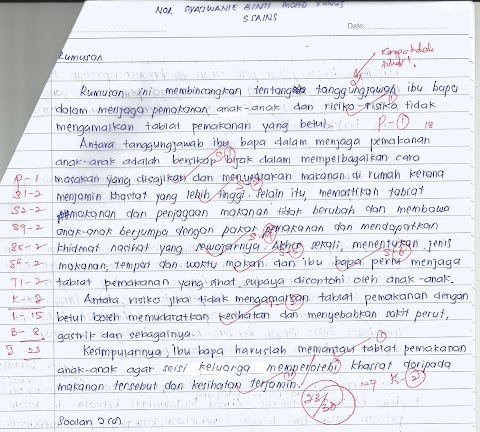 NOR SYAZWANIE BINTI MOHD YUNUS
5 SAINS
Date:
Rumusan
Rumusan ini membincangkan tentang tanggungjawab ibu bapa
dalam menjaga pemakanan anak-anak dan risiko-risiko tidak
mengamalkan tabiat pemakanan yang betul. P-1
Antara tanggungjawab ibu bapa dalam menjaga pemakanan
anak-anak adalah bersikap bijak dalam mempelbagaikan cara
P-1 masakan yang disajikan dan menyediakan makanan di rumah kerana
S1-2 menjamin khasiat yang lebih tinggi. Selain itu, memastikan tabiat
S2-2 pemakanan dan penjagaan makanan tidak berubah dan membawa
anak-anak berjumpa dengan pakar pemakanan dan mendapatkan
khidmat nasihat yang sewajarnya. Akhir sekali, menentukan jenis
makanan, tempat dan waktu makan dan ibu bapa perlu menjaga
T1-2 tabiat pemakanan yang sihat supaya dicontohi oleh anak-anak.
K-2 Antara risiko jika tidak mengamalkan tabiat pemakanan dengan
1-15 betul boleh memudaratkan kesihatan dan menyebabkan sakit perut,
B-8 gastrik dan sebagainya.
J 23 Kesimpulannya, ibu bapa haruslah memantau tabiat pemakanan
anak-anak agar seisi keluarga memperolehi khasiat daripada
makanan tersebut dan kesihatan terjamin. K-2
23/30
Soalan 2(a)